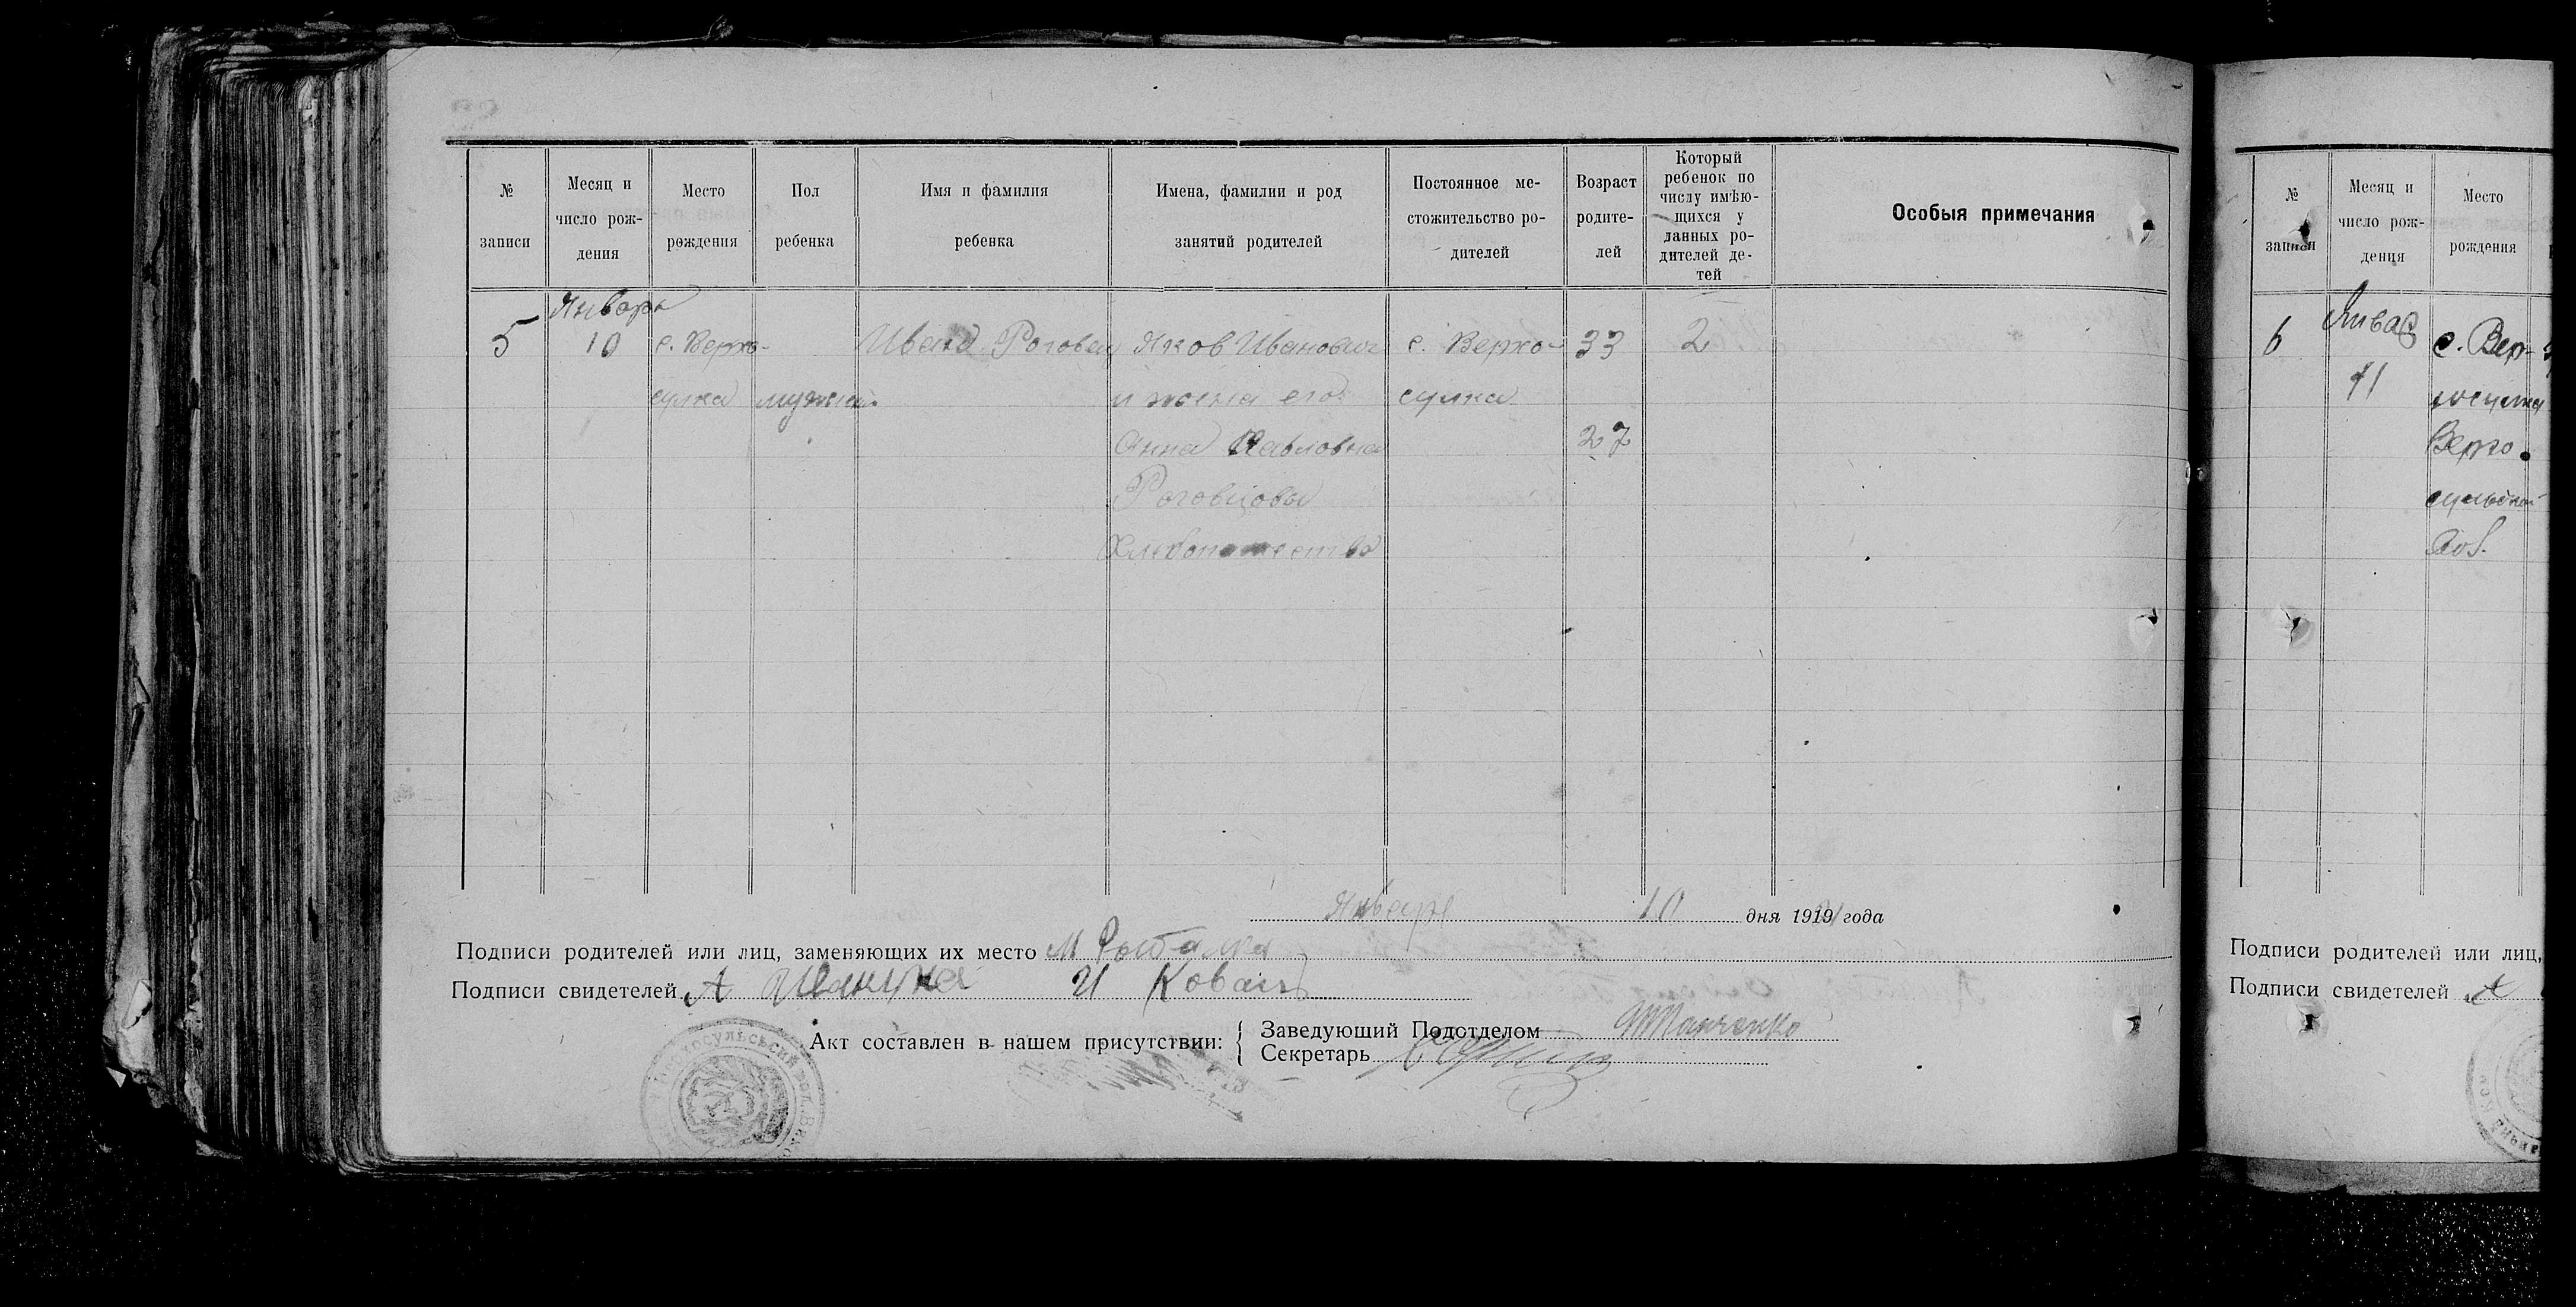 № записи
Месяц и число рождения
Место рождения
Пол ребенка
Имя и фамилия ребенка
Имена, фамилии и род занятий родителей
Постоянное местожительство родителей
Возраст родителей
Который ребенок по числу имѣющихся у данных родителей детей
Особыя примечания
5
Января
10
с. Верхо-
сулка
мужск.
Иван Роговец
Яков Иванович
и жена его
Анна Павловна
Роговцовы
Хлебопашество
с. Верхо-
сулка
33
27
2
Января 10 дня 1919 года
Подписи родителей или лиц, заменяющих их место М
Подписи свидетелей А И Коваль
Акт составлен в нашем присутствии:
Заведующий Подотделом Панченко
Секретарь
№ записи
Месяц и число рождения
Место рождения
6
Январ
11
с. Вер-
Верхо
сульской
Подписи родителей или лиц,
Подписи свидетелей А